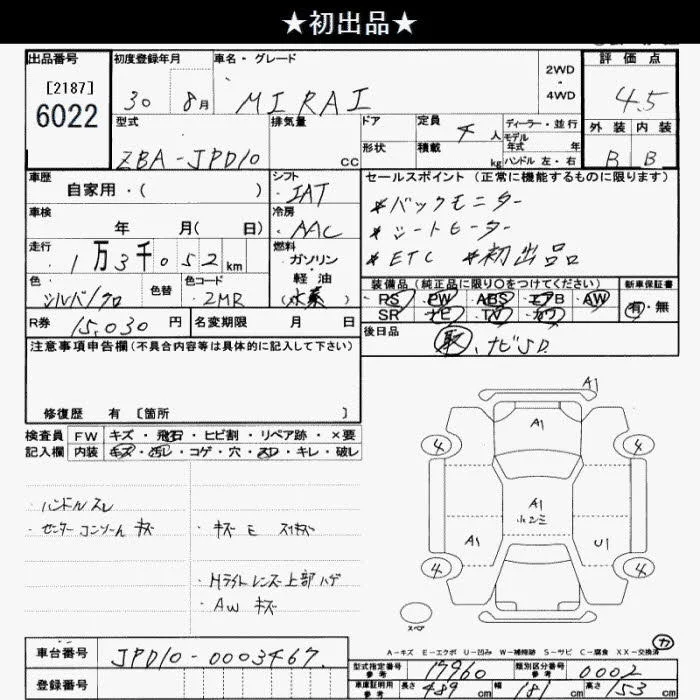 ★初出品★
出品番号 初度登録年月 車名・グレード 評価点
[2187] 2WD
6022 30 8月 MIRAI 4WD 4.5
型式 排気量 ドア 定員 4人 ディーラー・並行 外装 内装
モデル年式 年
形状 積載 kg ハンドル 左・右
ZBA-JPD10 cc B B
車歴 シフト セールスポイント (正常に機能するものに限ります)
自家用・( ) IAT
*バックモニター
車検 冷房
年 月( 日) AAC *シートヒーター
走行 燃料
1万3千052km ガソリン *ETC *初出品
軽油
色 色替 色コード (水素) 装備品 (純正品に限り○をつけてください) 新車保証書
シルバ/クロ 2MR PS PW ABS エアB AW 有・無
SR ナビ TV カワ
R券 15,030円 名変期限 月 日 後日品
注意事項申告欄(不具合内容等は具体的に記入して下さい) 取、ナビSD
修復歴 有 〔箇所 〕
検査員 FW キズ・飛石・ヒビ割・リペア跡・×要
記入欄 内装 キズ・汚レ・コゲ・穴・スレ・キレ・破レ
A1
A1
4 4
・ハンドルスレ
・センターコンソール キズ ・キズ E スリキズ
A1
小エミ
A1 U1
・Hライトレンズ上部ハゲ 4 4
・AW キズ
スペア
カ
A-キズ E-エクボ U-凹み W-補修跡 S-サビ C-腐食 XX-交換済
車台番号 JPD10-0003467.
型式指定番号 参考 17960 類別区分番号 参考 0002
登録番号 車庫証明用 参考 長さ 489cm 幅 181cm 高さ 153cm